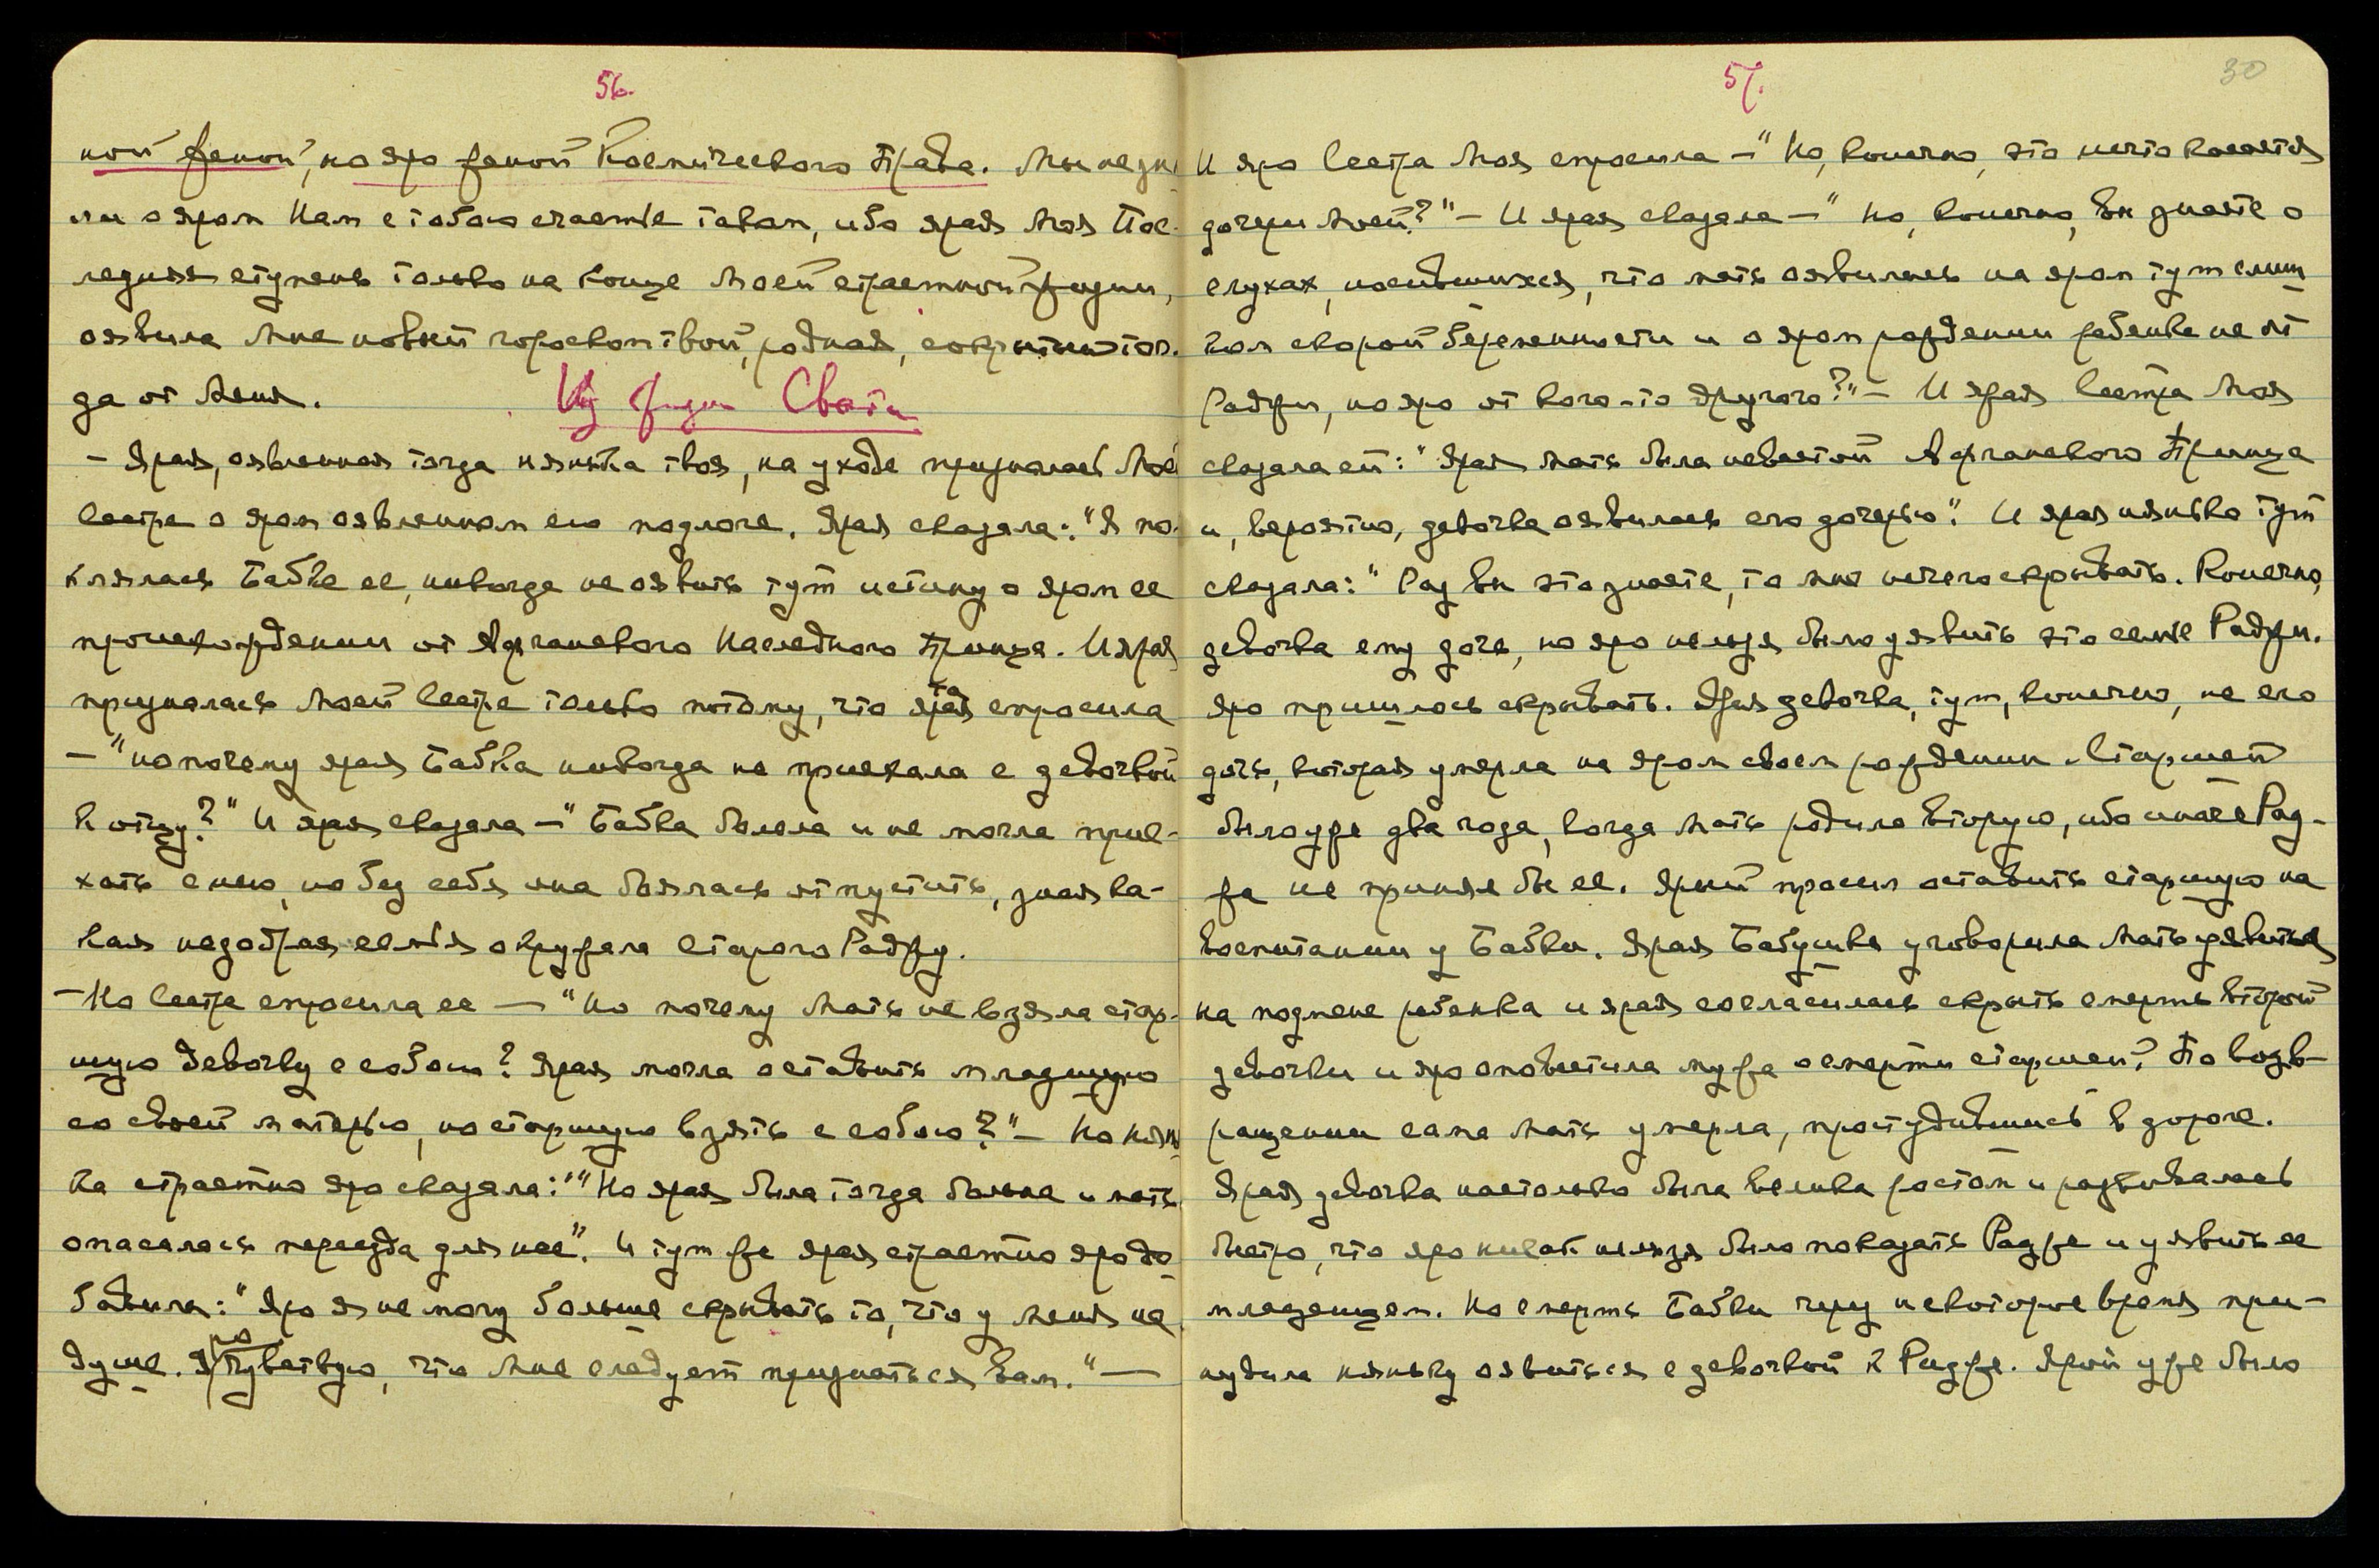 56.
ной женой, но яро женой Космического Права. Мы не зна
ли о яром Нам с тобою счастье таком, ибо ярая Моя Пос-
ледняя ступень только на конце Моей страстной жизни,
оявила Мне новый гороскоп твой, родная, сокрытый тог-
да от Меня.
Из жизни Свати
– Ярая, оявленная тогда нянька твоя, на уходе призналась Моей
Сестре о яром оявленном ею подлоге. Ярая сказала: "Я по-
клялась Бабке ее, никогда не оявить тут истину о яром ее
происхождении от Афганского Наследного Принца. И ярая
призналась Моей Сестре только потому, что та спросила
– "но почему ярая Бабка никогда не приехала с девочкой
к отцу?" И ярая сказала –" Бабка болела и не могла прие-
хать с нею, но без себя она боялась отпустить, зная ка-
кая недобрая семья окружала старого Раджу.
– Но Сестра спросила ее – "Но почему Мать не взяла стар-
шую девочку с собою? Ярая могла оставить младшую
со своей матерью, но старшую взять с собою?" – Но нянь
ка страстно яро сказала: "Но ярая была тогда больна и мать
опасалась переезда для нее". И тут же ярая страстно яро до-
бавила: "Яро я не могу больше скрывать то, что у меня на
душе. Яро чувствую, что мне следует признаться Вам." –
57.
30
И яро Сестра Моя спросила –" Но, конечно, это нечто касается
дочери Моей?" – И ярая сказала –" Но, конечно, Вы знаете о
слухах, носившихся, что мать оявилась на яром тут слиш
ком скорой беременности и о яром рождении ребенка не от
Раджи, но яро от кого-то другого?" – И ярая Сестра Моя
сказала ей: "Ярая мать была невестой Афганского Принца
и, вероятно, девочка оявилась его дочерью". И ярая нянька тут
сказала: "Раз Вы это знаете, то мне нечего скрывать. Конечно,
девочка ему дочь, но яро нельзя было уявить это семье Раджи.
Яро пришлось скрывать. Эта девочка, тут, конечно, не его
дочь, которая умерла на яром своем рождении. Старшей
было уже два года, когда Мать родила вторую, ибо иначе Рад-
жа не принял бы ее. Ярый просил оставить старшую на
воспитании у Бабки. Ярая Бабушка уговорила Мать уявиться
на подмене ребенка и ярая согласилась скрыть смерть второй
девочки и яро оповестила мужа о смерти старшей. По возв-
ращении сама Мать умерла, простудившись в дороге.
Ярая девочка настолько была велика ростом и развивалась
быстро, что яро никак нельзя было показать Радже и уявить ее
младенцем. Но смерть Бабки через некоторое время при-
нудила няньку оявиться с девочкой к Радже. Ярой уже было